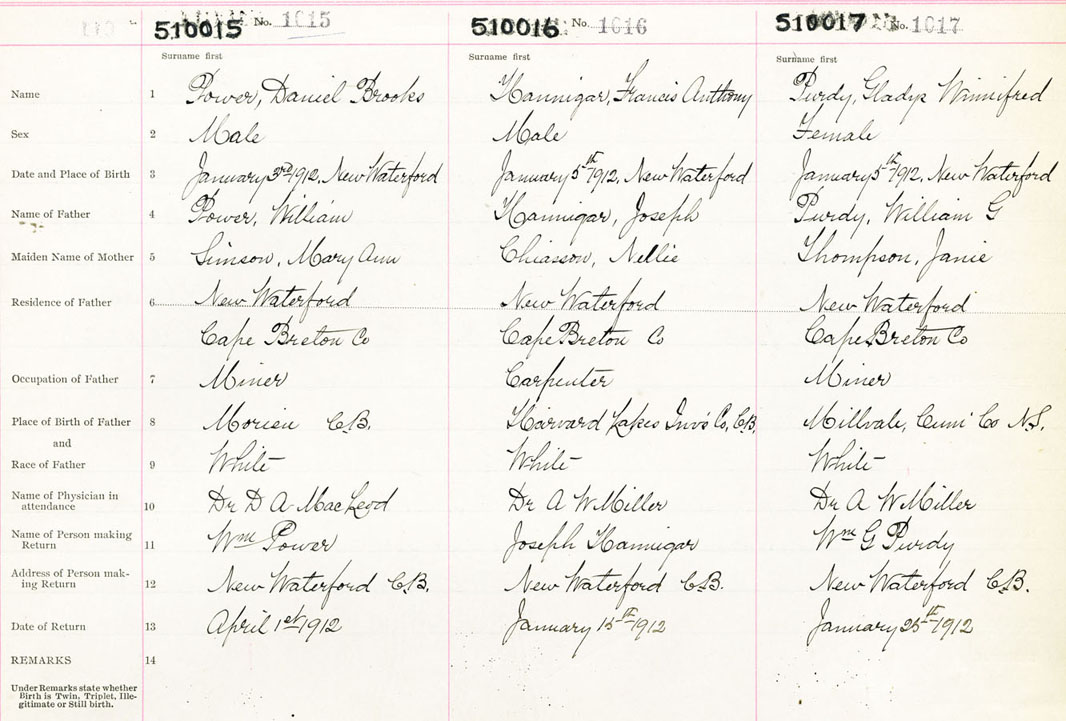 510015 No. 1015 510016 No. 1016 510017 No. 1017
Surname first Surname first Surname first
Name 1 Power, Daniel Brooks Hannigar, Francis Anthony Purdy, Gladys Winnifred
Sex 2 Male Male Female
Date and Place of Birth 3 January 3rd 1912, New Waterford January 5th 1912, New Waterford January 5th 1912, New Waterford
Name of Father 4 Power, William Hannigar, Joseph Purdy, William G
Maiden Name of Mother 5 Simson, Mary Ann Chiasson, Nellie Thompson, Janie
Residence of Father 6 New Waterford New Waterford New Waterford
Cape Breton Co Cape Breton Co Cape Breton Co
Occupation of Father 7 Miner Carpenter Miner
Place of Birth of Father 8 Morien C.B. Harvard Lakes Inv's Co, C.B. Millvale, Cum' Co N.S.
and
Race of Father 9 White White White
Name of Physician in
attendance 10 Dr D A MacLeod Dr A W Miller Dr A W Miller
Name of Person making
Return 11 Wm Power Joseph Hannigar Wm G Purdy
Address of Person mak-
ing Return 12 New Waterford C.B. New Waterford C.B. New Waterford C.B.
Date of Return 13 April 1st 1912 January 15th 1912 January 25th 1912
REMARKS 14
Under Remarks state whether
Birth is Twin, Triplet, Ille-
gitimate or Still birth.